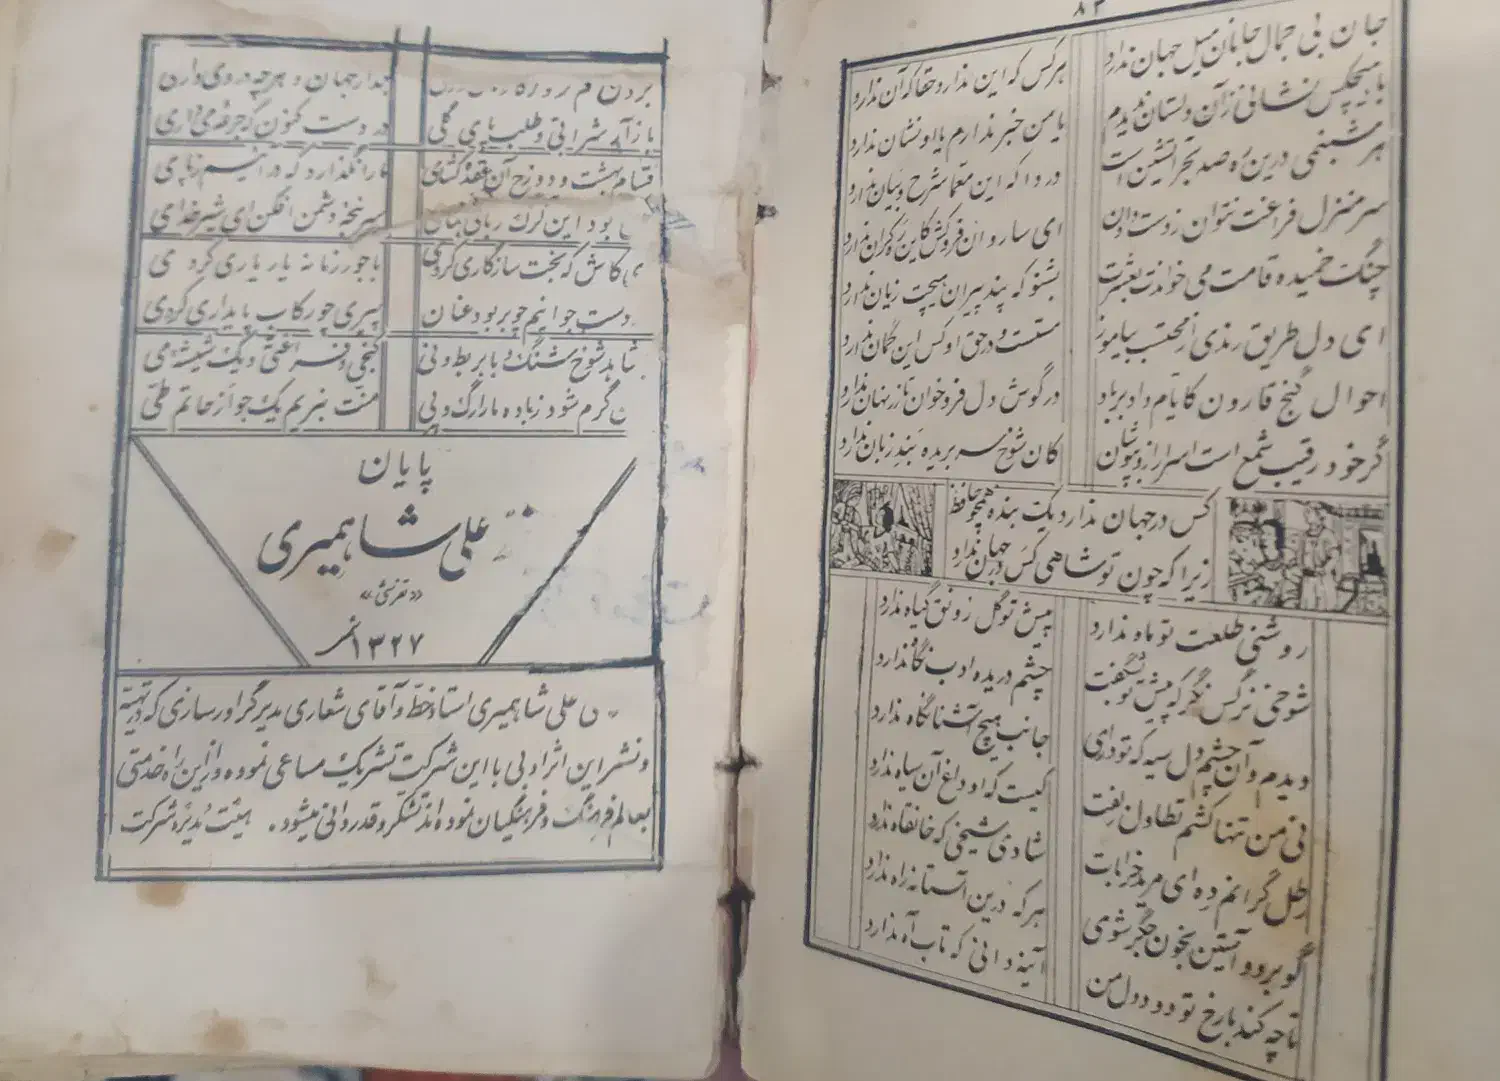 ۸۲
جان بی جمال جانان میل جهان ندارد هرکس که این ندارد حقا که آن ندارد
با هیچکس نشانی زآن دلستان ندیدم یا من خبر ندارم یا او نشان ندارد
هر شبنمی درین ره صد بحر آتشین است دردا که این معما شرح و بیان ندارد
سرمنزل فراغت نتوان زدست دادن ای ساروان فروکش کاین ره کران ندارد
چنگ خمیده قامت می خواندت بعشرت بشنو که پند پیران هیچت زیان ندارد
ای دل طریق رندی از محتسب بیاموز مستست و در حق او کس این گمان ندارد
احوال گنج قارون کایام داد بر باد در گوش دل فروخوان تا زر نهان ندارد
گر خود رقیب شمع است اسرار ازو بپوشان کان شوخ سر بریده بند زبان ندارد
کس در جهان ندارد یک بنده همچو حافظ
زیرا که چون تو شاهی کس در جهان ندارد
روشنی طلعت تو ماه ندارد پیش تو گل رونق گیاه ندارد
شوخی نرگس نگر که پیش تو بشگفت چشم دریده ادب نگاه ندارد
دیدم و آن چشم دل سیه که تو داری جانب هیچ آشنا نگاه ندارد
نی من تنها کشم تطاول زلفت کیست که او داغ آن سیاه ندارد
رطل گرانم ده ای مرید خرابات شادی شیخی که خانقاه ندارد
گو برو و آستین بخون جگر شوی هر که درین آستانه راه ندارد
تا چه کند با رخ تو دود دل من آینه دانی که تاب آه ندارد
جهان و هر چه در وی دارن
باز آی شرابی و طلب پای گلی در دست کنون که جرعه می داری
قسام بهشت و دوزخ آن عقده گشای ما را نگذارد که در آئیم زپای
بود این گرگ ربائی سرپنجه دشمن افکن ای شیر خدای
ی کاش که بخت سازگاری کردی با جور زمانه یار یاری کردی
دست جوانیم چو بربود عنان پیری چو رکاب پایداری کردی
شاهد شوخ شنگ و با بربط و نی کنجی و فراغتی و یک شیشه می
ن گرم شود زباده ما را رگ و پی منت نبریم یک جو از حاتم طی
پایان
علی شاهمیری
«تفرشی»
۱۳۲۷ قمر
ی علی شاهمیری استاد خط و آقای شعاری مدیر گراورسازی که در تهیه
و نشر این اثر ادبی با این شرکت تشریک مساعی نموده و از این راه خدمتی
بعالم فرهنگ و فرهنگیان نموده اند تشکر و قدردانی میشود. هیئت مدیره شرکت